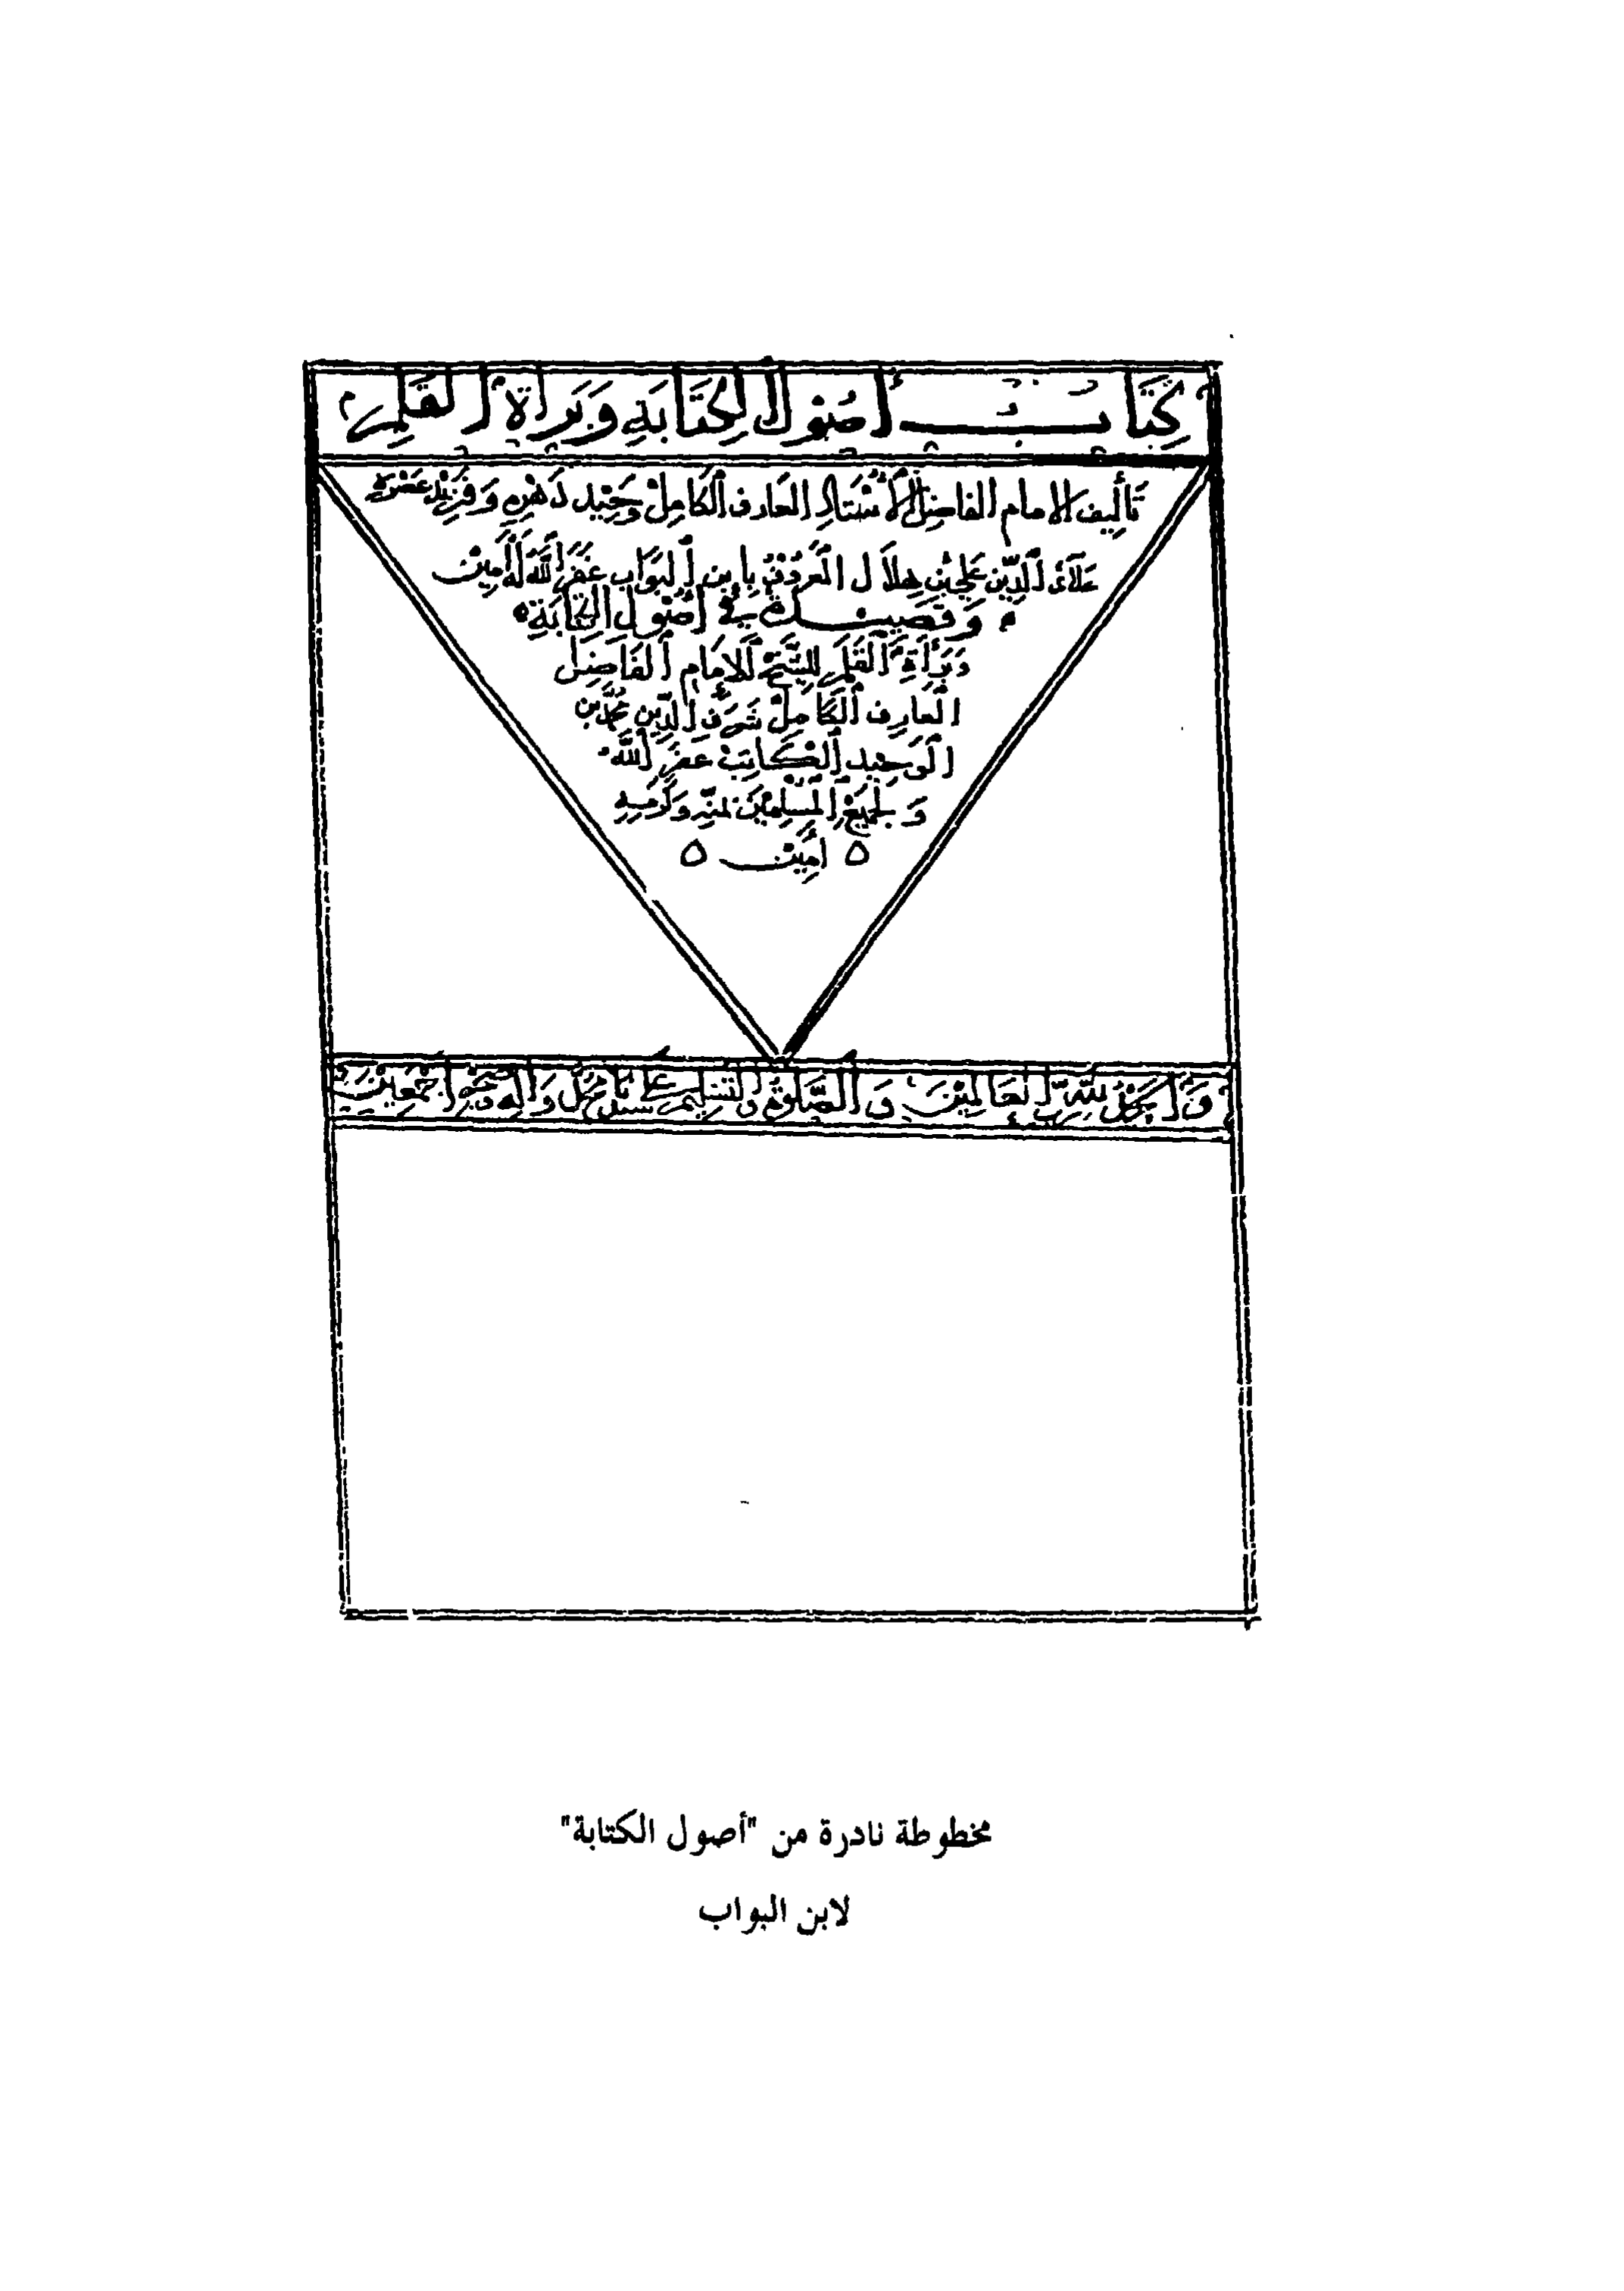 كِتَاب أُصُول الكِتَابَةِ وَبَرَاة القَلَم
تَأليف الامام الفاضِل الأُسْتَاد العارف الكامِل وَحِيد دَهْرِهِ وَفَرِيْد عَصْرِهِ
عَلاَء الدِّين عَلي بْن هِلاَل المَعرُوف بابن البَوَاب غَفَرَ اللهُ لَهُ امِيْن
وَقَصِيدَة فِي أُصُول الكِتَابَةِ
وَبَرْأَةِ القَلَم للشَّيْخ الامَام الفَاضِل
العَارِف الكَامِلْ شَرَف الدِّين مُحَمَّد بن
الوَحِيد الكَاتِب غَفَرَ اللهُ
وَلجَمِيْعِ المُسْلِمِيْنَ بمَنِّهِ وَكَرَمِهِ
ه امِيْن ه
وَالحَمْدُ للهِ رَبِّ العَالَمِيْنَ وَالصَّلوةُ وَالتَسْلِيم عَلى سَيِّدِنَا مُحَمَّد وَآلِهِ وَصَحْبِهِ اَجْمَعِيْنَ
مخطوطة نادرة من "أصول الكتابة"
لابن البواب